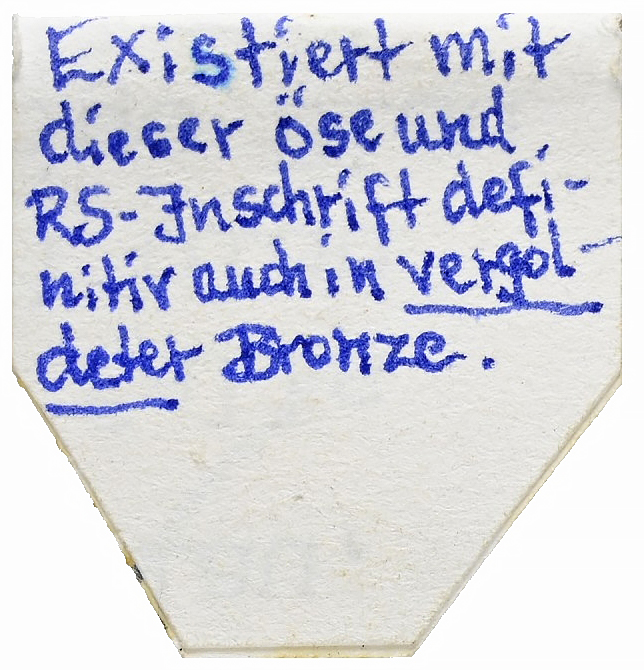 Existiert mit
dieser Öse und
RS-Inschrift defi-
nitiv auch in vergol-
deter Bronze.